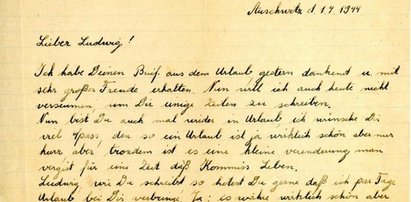 Auschwitz d. 1.9.1944
Lieber Ludwig!
Ich habe Deinen Brief aus dem Urlaub gestern dankend u. mit
sehr großer Freude erhalten. Nun will ich auch heute nicht
versäumen, um Dir einige Zeilen zu schreiben.
Nun bist Du auch mal wieder in Urlaub ich wünsche Dir
viel Spass, den so ein Urlaub ist ja wirklich schön aber nur
kurz aber, trozdem ist es eine kleine veränderung man
vergist für eine Zeit daß Kommiss Leben.
Ludwig wie Du schreibst so hetest Du gerne daß ich par Tage
Urlaub bei Dir verbringe. Ja: es währe wirklich schön aber